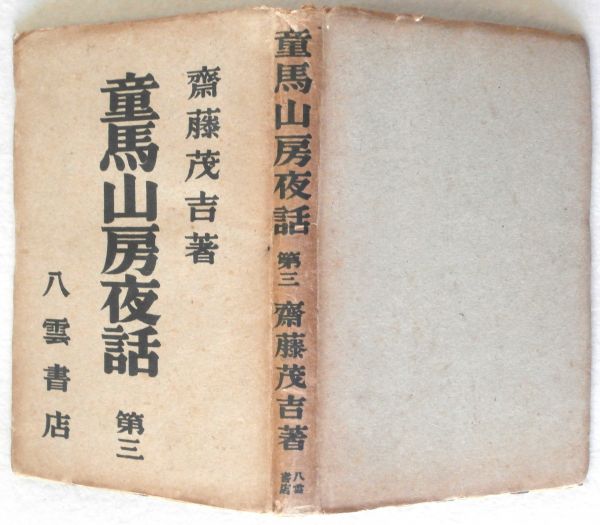 齋藤茂吉著
童馬山房夜話 第三
八雲書店
童馬山房夜話 第三 齋藤茂吉著
八雲
書店